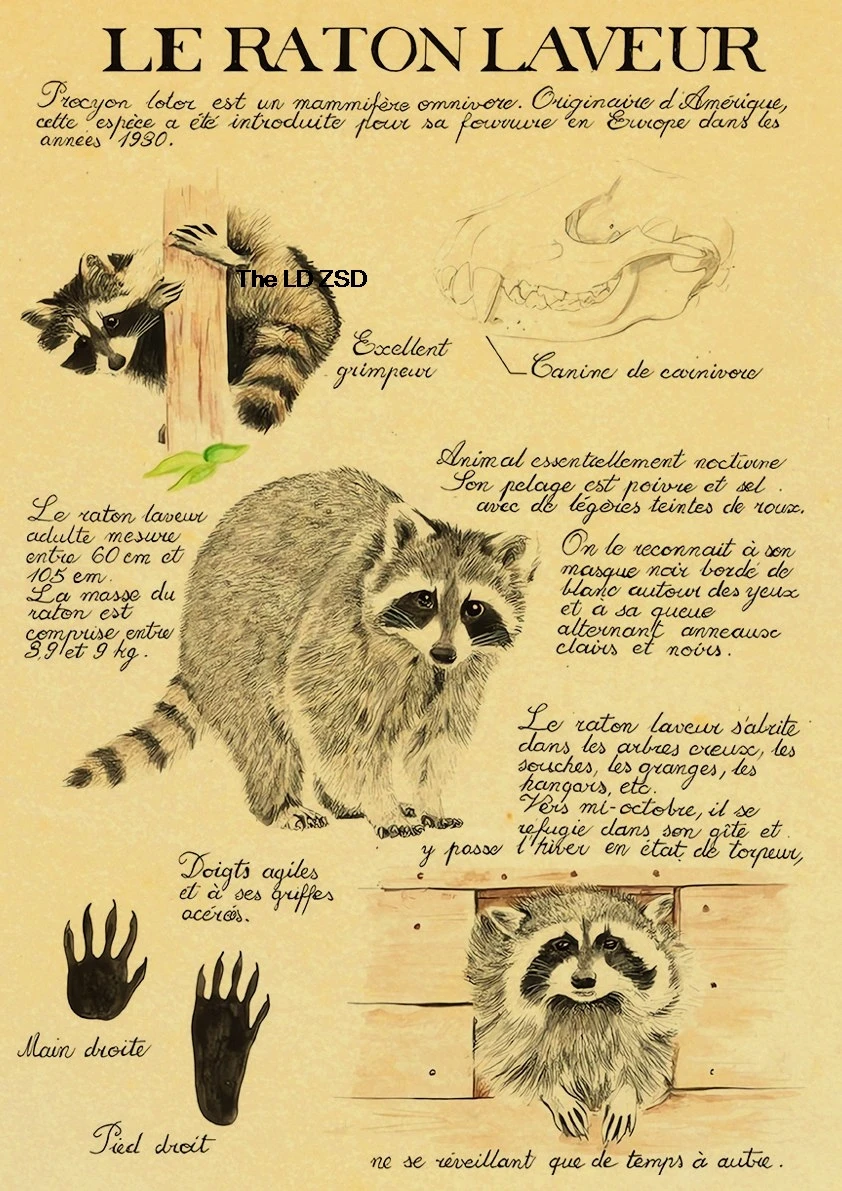 LE RATON LAVEUR
Procyon lotor est un mammifère omnivore. Originaire d'Amérique,
cette espèce a été introduite pour sa fourrure en Europe dans les
années 1930.
The LD ZSD
Exellent
grimpeur
Canine de carnivore
Animal essentiellement nocturne
Son pelage est poivre et sel
avec de légères teintes de roux.
Le raton laveur
adulte mesure
entre 60 cm et
105 cm.
La masse du
raton est
comprise entre
3,9 et 9 kg.
On le reconnait à son
masque noir bordé de
blanc autour des yeux
et à sa queue
alternant anneaux
clairs et noirs.
Le raton laveur s'abrite
dans les arbres creux, les
souches, les granges, les
hangars, etc.
Vers mi-octobre, il se
refugie dans son gîte et
y passe l'hiver en état de torpeur,
Doigts agiles
et à ses griffes
acérés.
Main droite
Pied droit
ne se réveillant que de temps à autre.